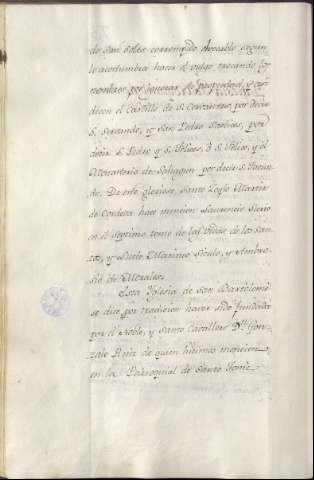 de San Soles corrompido el vocablo segun
lo acostumbra hacer el vulgo trocando los
nombres por ignorar la propiedad, y asi
dicen el Castillo de S. Cervantes, por decir
S. Servando, y San Pedro por
decir S. Pedro y S. Felices, ó S. Felix, y el
Monasterio de Sahagun por decir S. Facun-
do. De este glorioso Santo Zoylo Martir
de Cordova hace mencion Laurencio Surio
en el septimo tomo de las vidas de los San-
tos, y Lucio Marineo Siculo, y Ambro-
sio de Morales.
Esta Yglesia de San Bartolomé
se dice por tradicion haver sido fundada
por el Noble, y Santo Cavallero Dn. Gon-
zalo Ruiz de quien hicimos mencion
en la Parroquial de Santo Tomé